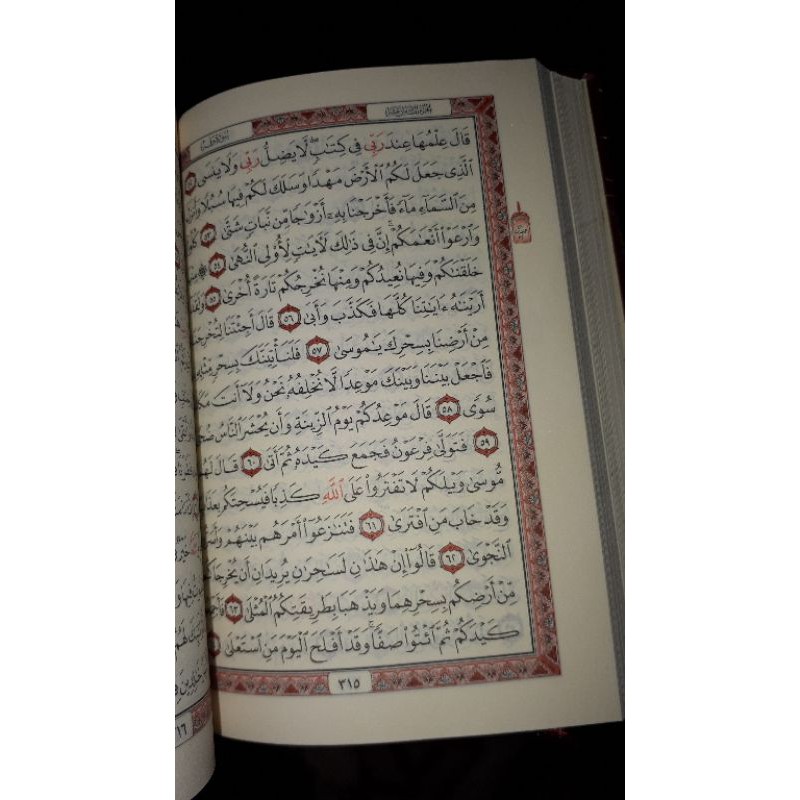 قَالَ عِلْمُهَا عِندَ رَبِّى فِى كِتَٰبٍ لَّا يَضِلُّ رَبِّى وَلَا يَنسَى
ٱلَّذِى جَعَلَ لَكُمُ ٱلْأَرْضَ مَهْدًا وَسَلَكَ لَكُمْ فِيهَا سُبُلًا
مِنَ ٱلسَّمَآءِ مَآءً فَأَخْرَجْنَا بِهِۦٓ أَزْوَٰجًا مِّن نَّبَاتٍ شَتَّىٰ ٥٣
وَٱرْعَوْا۟ أَنْعَٰمَكُمْ إِنَّ فِى ذَٰلِكَ لَءَايَٰتٍ لِّأُو۟لِى ٱلنُّهَىٰ ٥٤
خَلَقْنَٰكُمْ وَفِيهَا نُعِيدُكُمْ وَمِنْهَا نُخْرِجُكُمْ تَارَةً أُخْرَىٰ ٥٥
أَرَيْنَٰهُ ءَايَٰتِنَا كُلَّهَا فَكَذَّبَ وَأَبَىٰ ٥٦ قَالَ أَجِئْتَنَا
مِنْ أَرْضِنَا بِسِحْرِكَ يَٰمُوسَىٰ ٥٧ فَلَنَأْتِيَنَّكَ بِسِحْرٍ مِّثْلِهِۦ
فَٱجْعَلْ بَيْنَنَا وَبَيْنَكَ مَوْعِدًا لَّا نُخْلِفُهُۥ نَحْنُ وَلَآ أَنتَ
سُوًى ٥٨ قَالَ مَوْعِدُكُمْ يَوْمُ ٱلزِّينَةِ وَأَن يُحْشَرَ ٱلنَّاسُ
٥٩ فَتَوَلَّىٰ فِرْعَوْنُ فَجَمَعَ كَيْدَهُۥ ثُمَّ أَتَىٰ ٦٠ قَالَ
مُّوسَىٰ وَيْلَكُمْ لَا تَفْتَرُوا۟ عَلَى ٱللَّهِ كَذِبًا فَيُسْحِتَكُم
وَقَدْ خَابَ مَنِ ٱفْتَرَىٰ ٦١ فَتَنَٰزَعُوٓا۟ أَمْرَهُم بَيْنَهُمْ
ٱلنَّجْوَىٰ ٦٢ قَالُوٓا۟ إِنْ هَٰذَٰنِ لَسَٰحِرَٰنِ يُرِيدَانِ أَن
مِّنْ أَرْضِكُم بِسِحْرِهِمَا وَيَذْهَبَا بِطَرِيقَتِكُمُ ٱلْمُثْلَىٰ ٦٣
كَيْدَكُمْ ثُمَّ ٱئْتُوا۟ صَفًّا وَقَدْ أَفْلَحَ ٱلْيَوْمَ مَنِ ٱسْتَعْلَىٰ
٣١٥